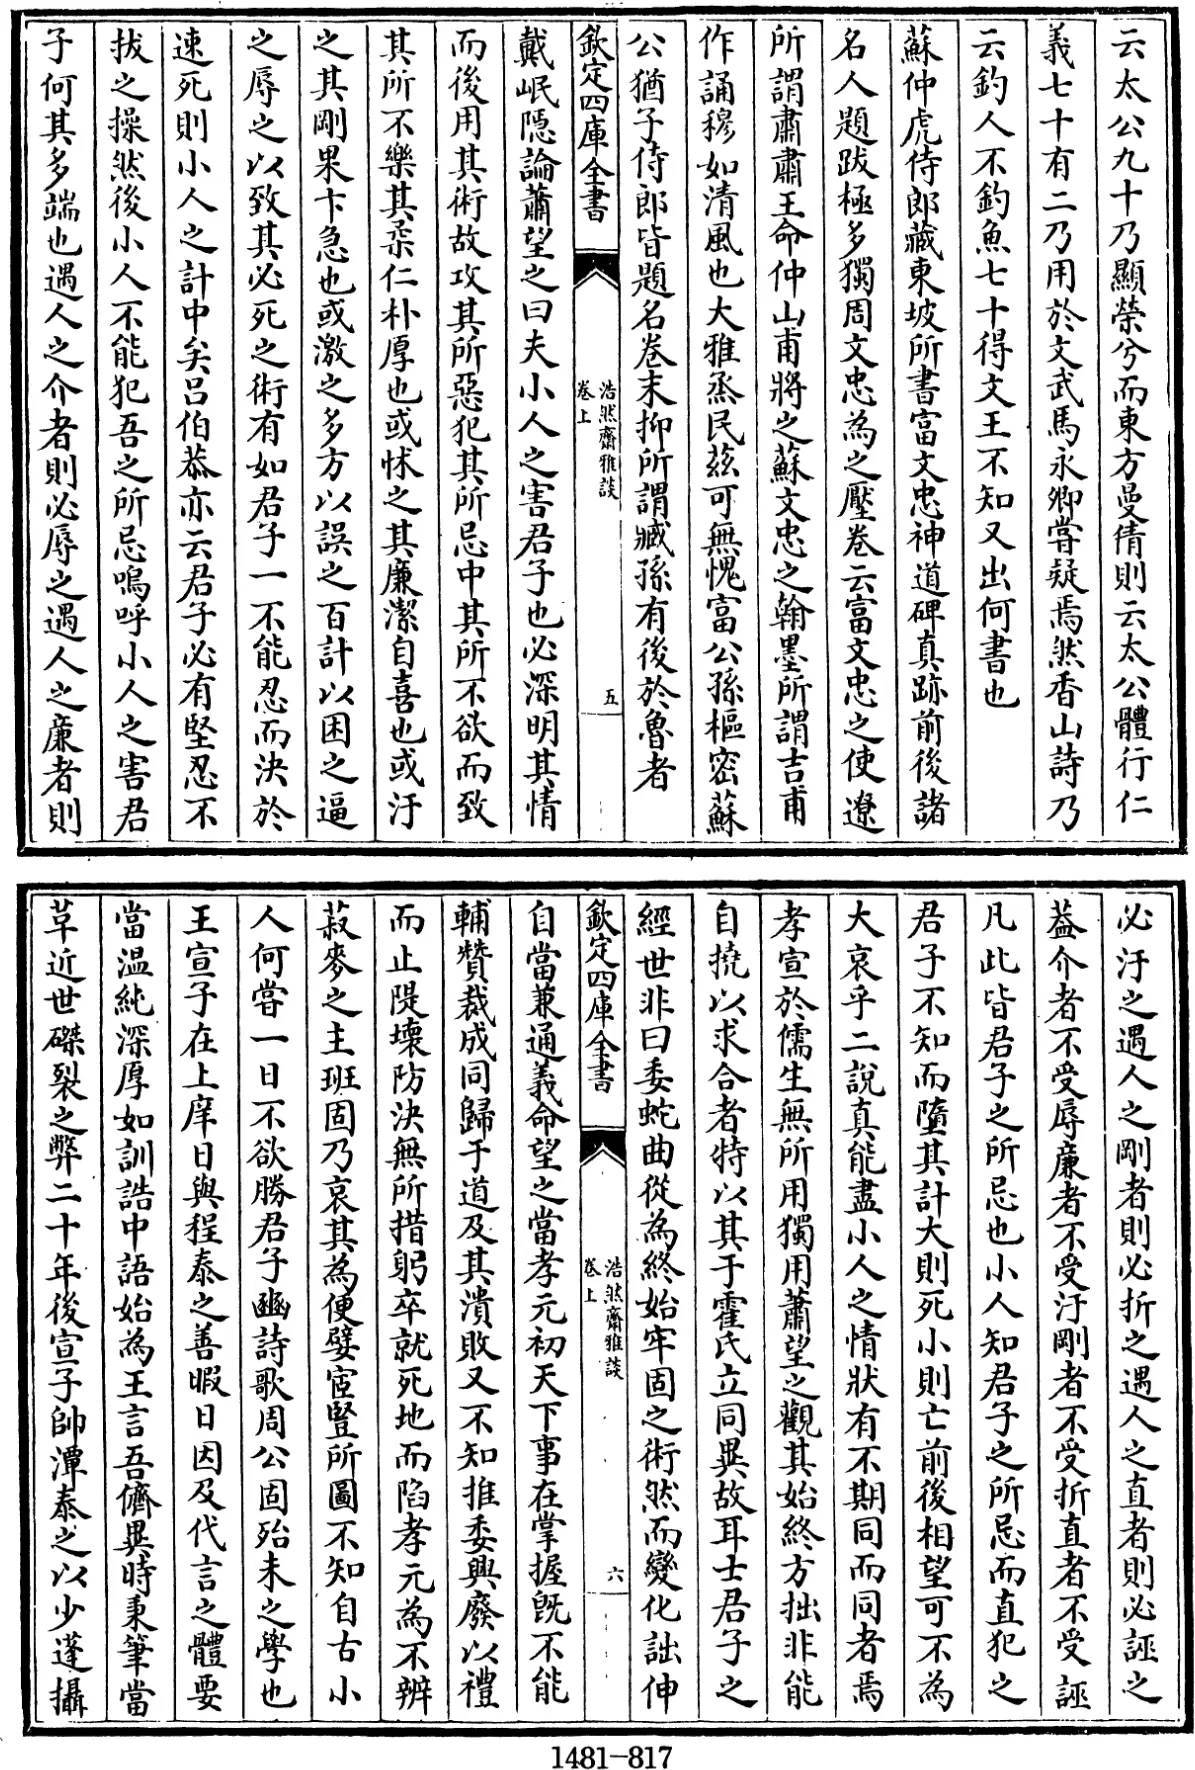 云太公九十乃顯榮兮而東方曼倩則云太公體行仁
義七十有二乃用於文武馬永卿嘗疑焉然香山詩乃
云釣人不釣魚七十得文王不知又出何書也
蘇仲虎侍郎藏東坡所書富文忠神道碑真跡前後諸
名人題跋極多獨周文忠為之壓卷云富文忠之使遼
所謂肅肅王命仲山甫將之蘇文忠之翰墨所謂吉甫
作誦穆如清風也大雅烝民茲可無愧富公孫樞密蘇
公猶子侍郎皆題名卷末抑所謂臧孫有後於魯者
欽定四庫全書
浩然齋雅談
卷上
五
戴岷隱論蕭望之曰夫小人之害君子也必深明其情
而後用其術故攻其所惡犯其所忌中其所不欲而致
其所不樂其柔仁朴厚也或怵之其廉潔自喜也或汙
之其剛果卞急也或激之多方以誤之百計以困之逼
之辱之以致其必死之術有如君子一不能忍而決於
速死則小人之計中矣呂伯恭亦云君子必有堅忍不
拔之操然後小人不能犯吾之所忌嗚呼小人之害君
子何其多端也遇人之介者則必辱之遇人之廉者則
必汙之遇人之剛者則必折之遇人之直者則必誣之
蓋介者不受辱廉者不受汙剛者不受折直者不受誣
凡此皆君子之所忌也小人知君子之所忌而直犯之
君子不知而墮其計大則死小則亡前後相望可不為
大哀乎二說真能盡小人之情狀有不期同而同者焉
孝宣於儒生無所用獨用蕭望之觀其始終方拙非能
自撓以求合者特以其于霍氏立同異故耳士君子之
經世非曰委蛇曲從為終始牢固之術然而變化詘伸
欽定四庫全書
浩然齋雅談
卷上
六
自當兼通義命望之當孝元初天下事在掌握既不能
輔贊裁成同歸于道及其潰敗又不知推委興廢以禮
而止隄壞防決無所措躬卒就死地而陷孝元為不辨
菽麥之主班固乃哀其為便嬖宦豎所圖不知自古小
人何嘗一日不欲勝君子豳詩歌周公固殆未之學也
王宣子在上庠日與程泰之善暇日因及代言之體要
當溫純深厚如訓誥中語始為王言吾儕異時秉筆當
草近世磔裂之弊二十年後宣子帥潭泰之以少蓬攝
1481-817